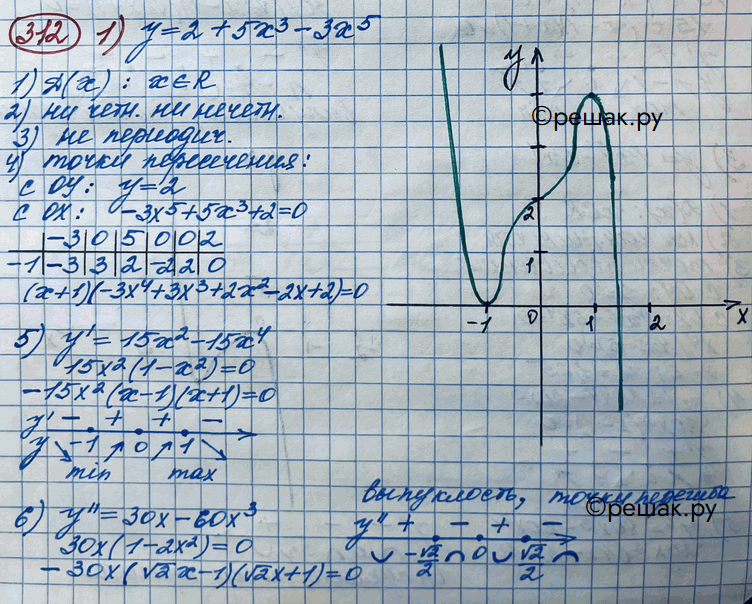 312 1) y = 2 + 5x³ - 3x⁵
1) D(x) : x ∈ R
2) ни четн. ни нечетн.
3) не периодич.
4) точки пересечения:
с OY: y = 2
с OX: -3x⁵ + 5x³ + 2 = 0
-3 | 0 | 5 | 0 | 0 | 2
-1 | -3 | 3 | 2 | -2 | 2 | 0
(x+1)(-3x⁴+3x³+2x²-2x+2)=0
5) y' = 15x² - 15x⁴
15x²(1-x²)=0
-15x²(x-1)(x+1)=0
y' - + + -
y -1 0 1
min max
6) y'' = 30x - 60x³
30x(1-2x²)=0
-30x(√2x-1)(√2x+1)=0
y
©решак.ру
2
1
-1 0 1 2 x
выпуклость, точки перегиба
©решак.ру
y'' + - + -
-√2/2 0 √2/2